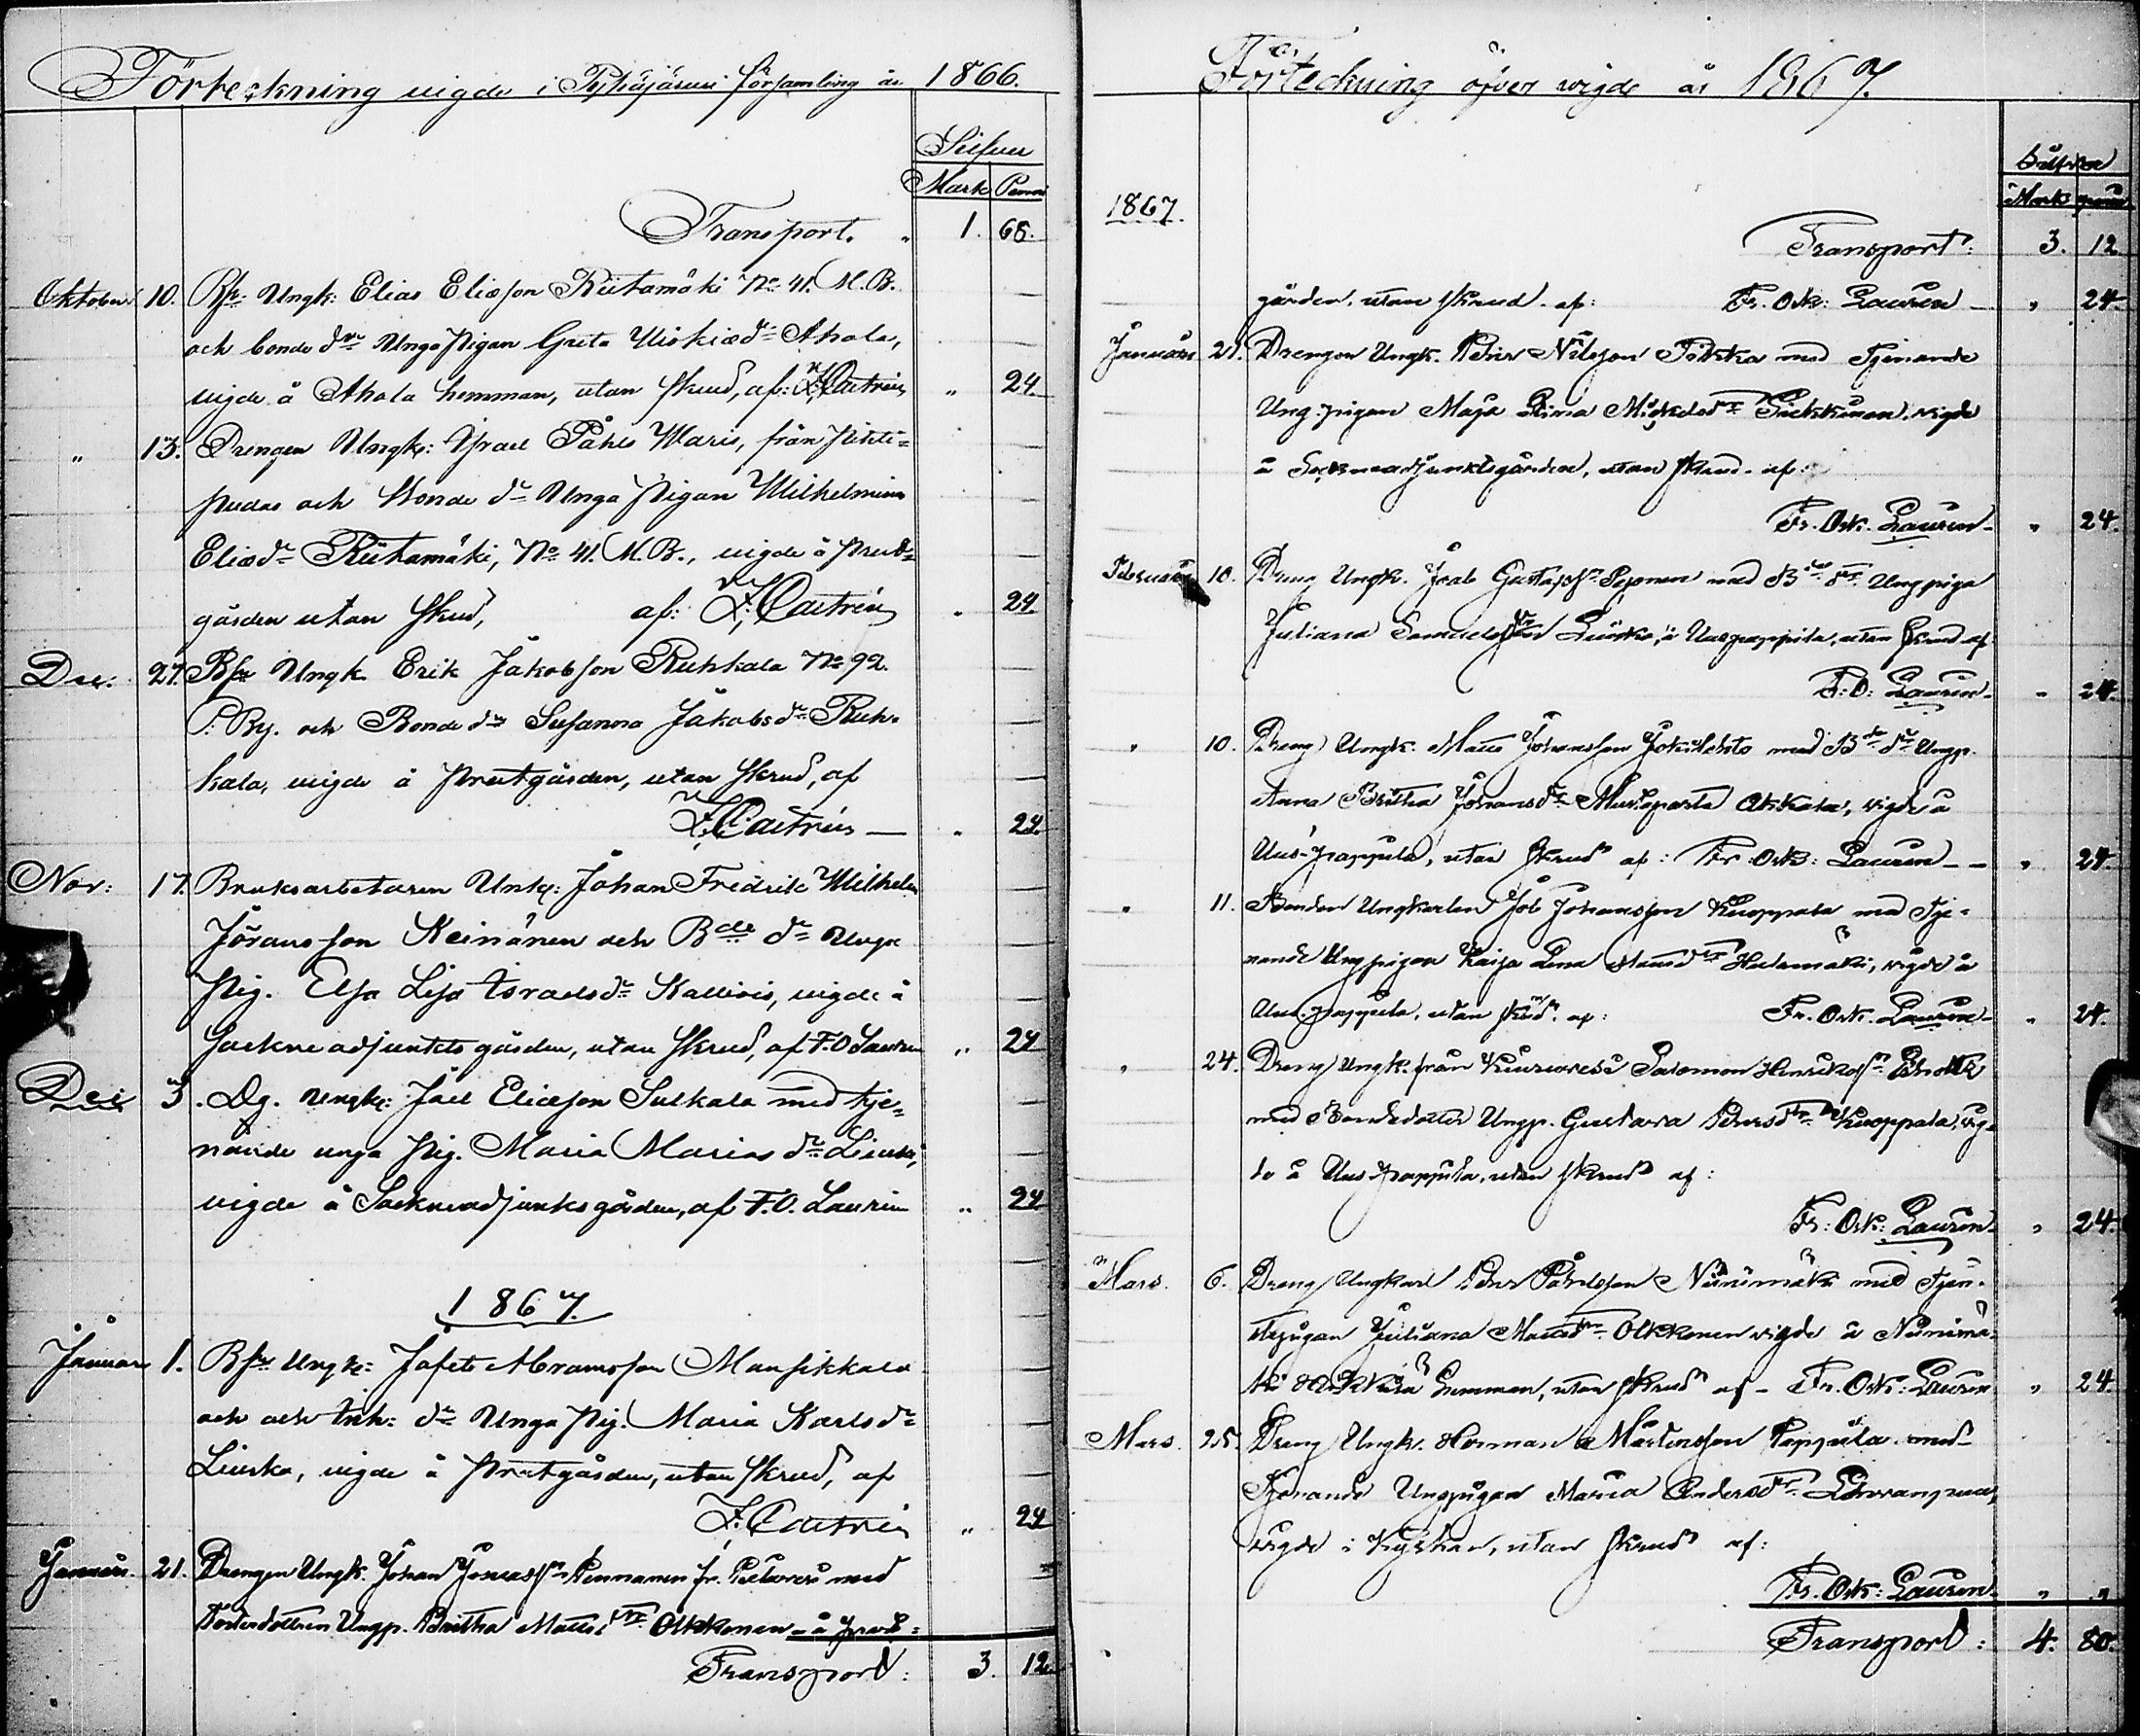 Förteckning vigde i Pyhäjärvi församling år 1866.
Silfver
Mark Penni
Transport. " 1. 68.
Oktober 10. Bs: Ungk: Elias Eliasson Riitamäki No 41. M.B.
och bonde dr Unga Pigan Greta dr Ahola,
vigde å Ahola hemman, utan skrud, af: F. Castrén " 24
" 13. Drengen Ungk: Israel Påhls Waris, från Pihti=
pudas och Bonde dr Unga Pigan Wilhelmina
Eliædr Riitamäki, No 41. M.B., vigde å Prest=
gården utan skrud, af: F. Castrén " 24
Dec: 27. Bs Ungk. Erik Jakobsson Ruhkala No 92.
P. By. och Bonde dr Susanna Jakobsdr Ruh=
kala, vigde å Prestgården, utan skrud, af
F. Castrén — " 24.
Nov: 17. Bruksarbetaren Ungk: Johan Fredrik Wilhelm
Göransson Keinänen och Bde dr Unga
Pig. Elsa Lisa Israelsdr Kallioi, vigde å
Sockneadjunkts gården, utan skrud, af F.O Lauren " 24
Dec 3. Dg. Ungk: Joel Eliasson Sulkala med tje=
nande unga Pig. Maria Mariasdr Liuska,
vigde å Sockneadjunksgården, af F.O. Lauren " 24
1867.
Januari 1. Bs Ungk: Jafets Abramsson Mansikkala
och och Inh: dr Unga Pig. Maria Karlsdr
Liuska, vigde å Prestgården, utan skrud, af
F. Castrén " 24
Januari. 21. Drengen Ungk. Johan Jonassn Pennanen fr. Pielaves med
Torpdottren Ungp. Britha Mattsdtr Olkkonen – å Prest=
Transport: 3. 12
Förteckning öfver vigde år 1867.
Silfver
Mark penni
1867.
Transport: 3. 12
gården. utan skrud. af: Fr. Osk: Lauren — " 24.
Januari 21. Drengen Ungk. Petter Nilsson Pitkä med Tjenande
Ung. pigan Maja Stina Mickelsdtr vigde
å Sockneadjunktsgården, utan skrud. af:
Fr. Osk. Lauren — " 24.
Februari 10. Dreng Ungk. Joab Gustafssn Pejonen med Bde dtr Ungpiga
Juliana Samuelsdtr Liuska, å Uuspappila, utan skrud af
F: O: Lauren — " 24.
" 10. Dreng Ungk. Matts Johansson Jokilehto med Bde dtr Ungp.
Anna Britha Johansdtr Akkala, vigde å
Uus-pappila, utan skrud af: Fr. Osk: Lauren — " 24.
" 11. Bonden Ungkarlen Job Johansson Kuoppala med Tje=
nande Ungpigan Kaisa Lena Hietamäki, vigde å
Uus.pappila, utan skrud. af: Fr. Osk. Lauren — " 24.
" 24. Dreng Ungk. från Kiuruvesi Salomon Henrikssn
med Bondedotter Ungp. Gustava Petersdtr Kuoppala, vig=
de å Uus pappila, utan skrud af:
Fr: Osk: Lauren — " 24.
Mars. 6. Dreng Ungkarl Petter Påhlsson Niinimäki med Tjen=
stepigan Juliana Mattsdtr Olkkonen vigde å Niinimä=
ki hemman, utan skrud af – Fr. Osk: Lauren " 24
Mars. 25. Dreng Ungk. Herman Mårtensson Pappila. med
Tjenande Ungpigan Maria Andersdtr
vigde i Kyrkan, utan skrud af:
Fr. Osk: Lauren. " "
Transport: 4. 80.